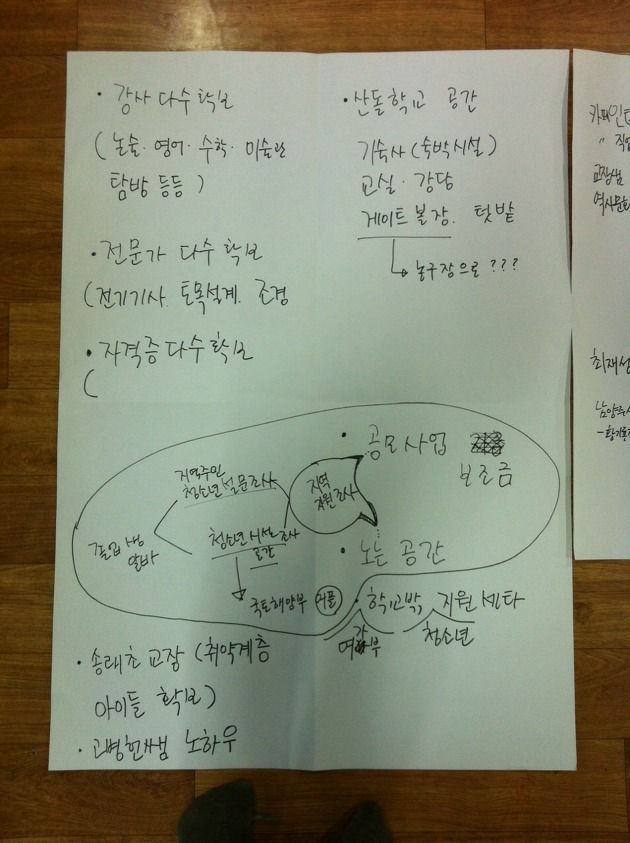 · 강사 다수 확보
( 논술 · 영어 · 수학 · 미술관
탐방 등등 )
· 전문가 다수 확보
( 전기기사. 토목설계. 조경
· 자격증 다수 확보
(
· 산돌학교 공간
기숙사 ( 숙박시설 )
교실 · 강당
게이트볼장. 텃밭
농구장으로 ???
· 공모사업
보조금
지역
자원조사
지역주민
청소년 설문조사
졸업생
알바
청소년 시설조사
공간
국토해양부 커플
· 노는 공간
· 학교밖 지원센타
여가부 청소년
· 송래초 교장 ( 취약계층
아이들 확보 )
· 고병헌쌤 노하우
교장쌤
최재성